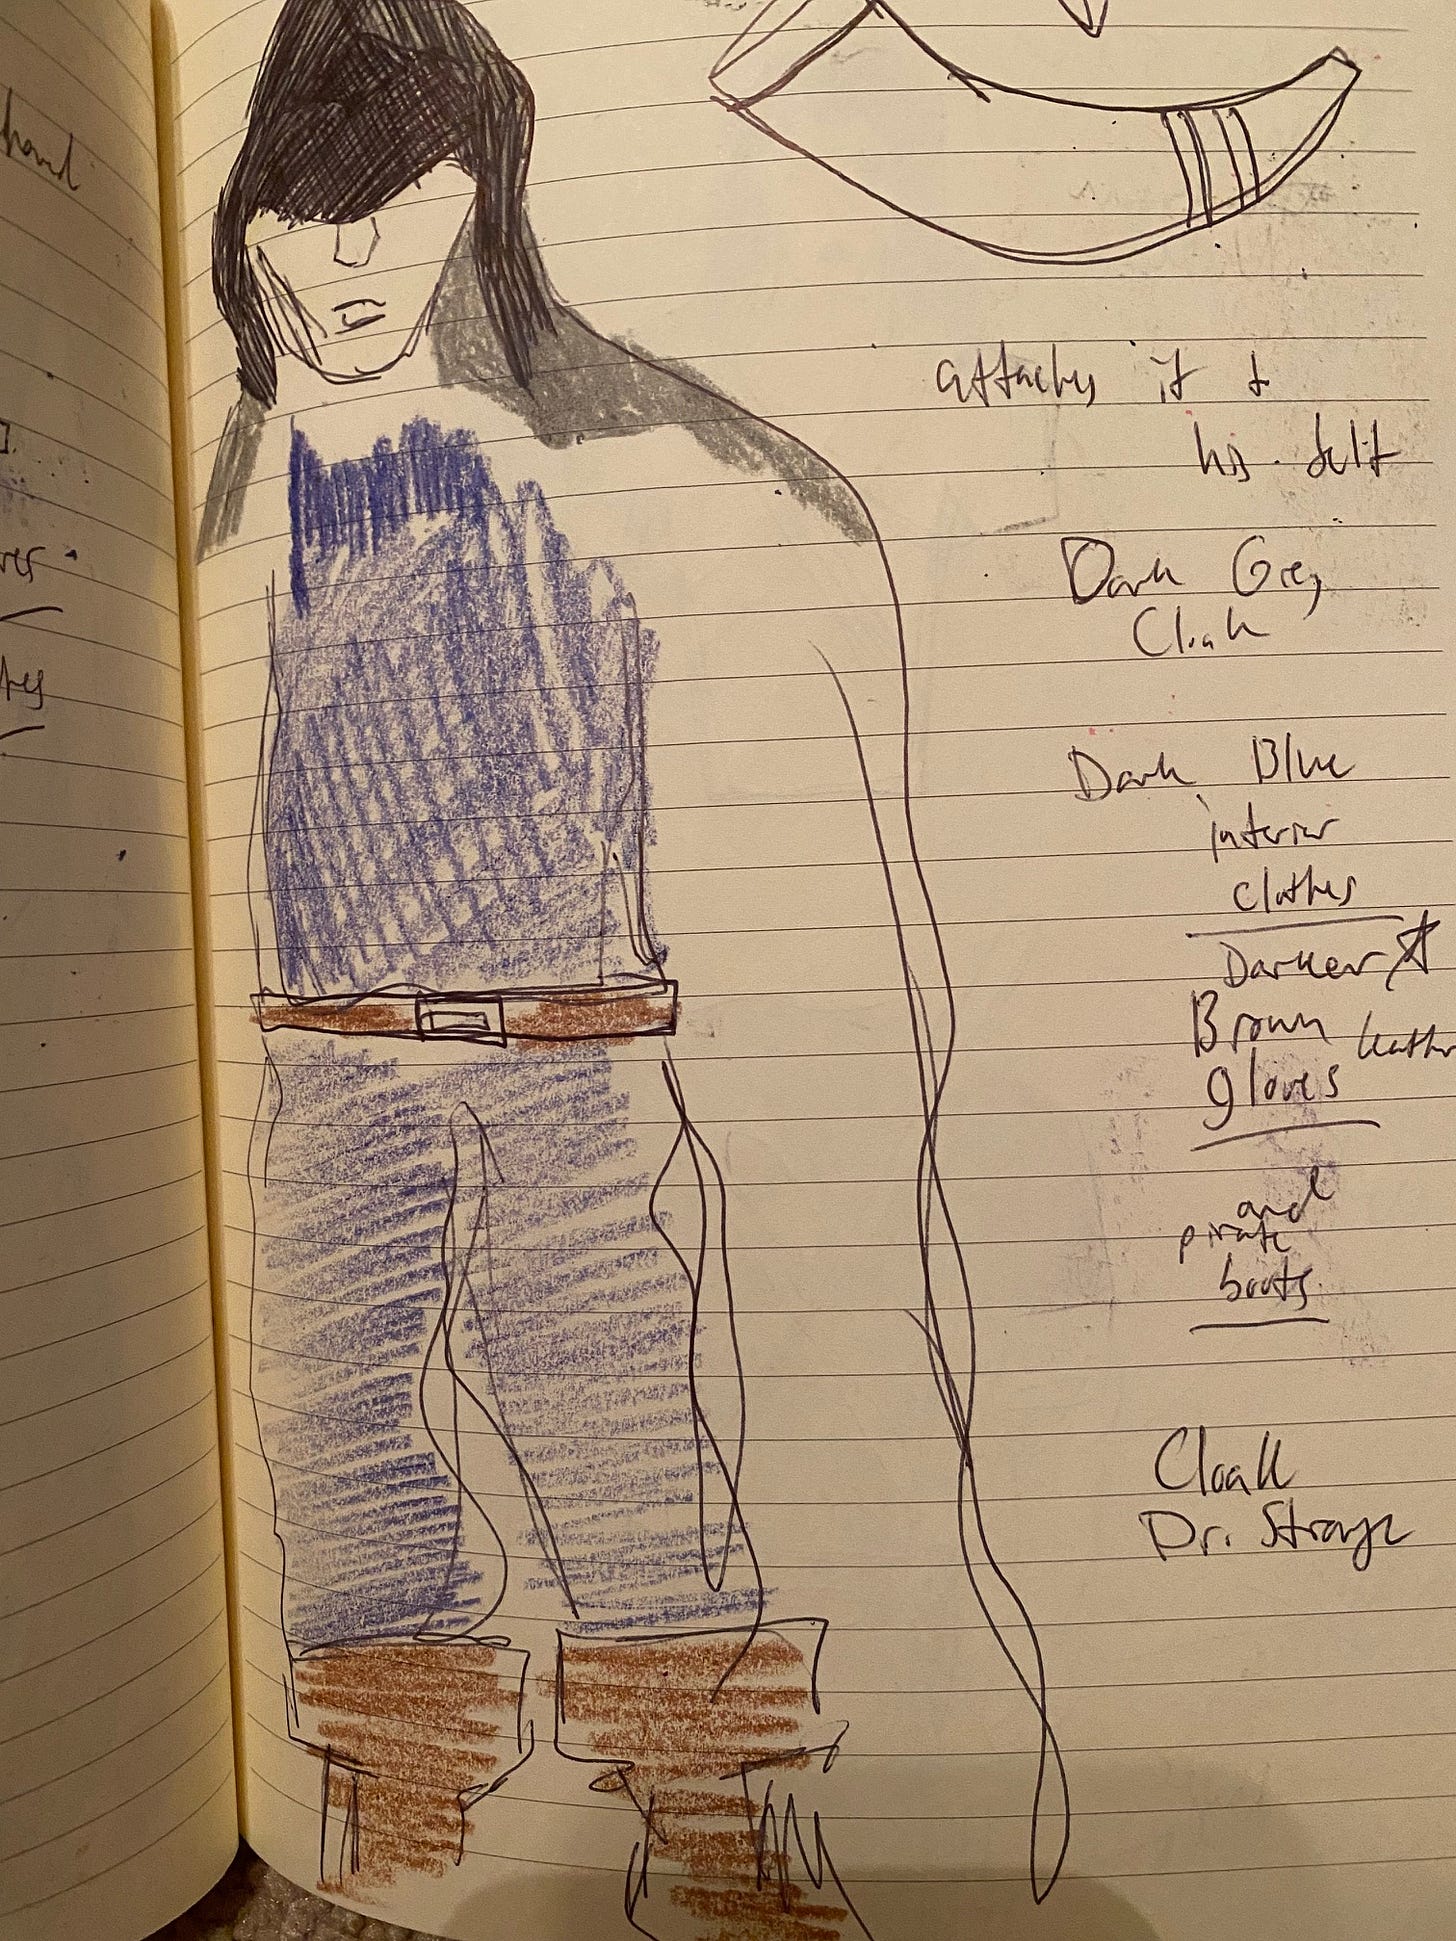 hand
attaches it to
his belt
Dark Grey
Cloak
Dark Blue
interior
clothes
Darker
Brown leather
gloves
and
pirate
boots
Cloak
Dr. Strange